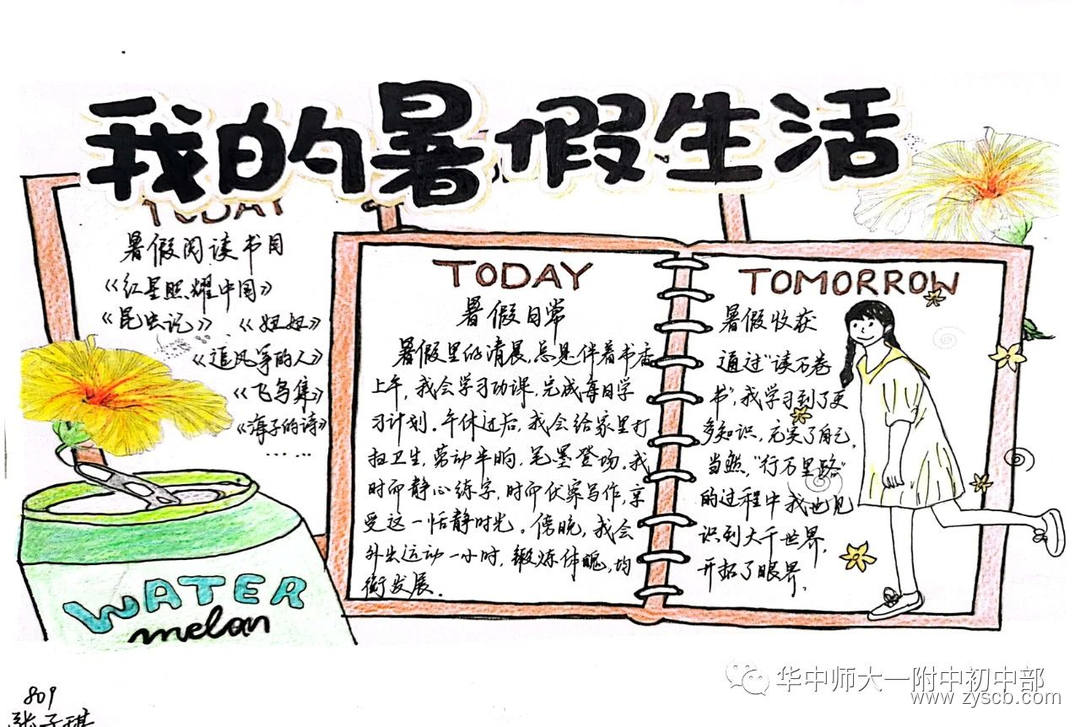 我的暑假生活
TODAY
暑假阅读书目
《红星照耀中国》
《昆虫记》 《妞妞》
《追风筝的人》
《飞鸟集》
《海子的诗》
……
TODAY
暑假日常
暑假里的清晨,总是伴着书香
上午,我会学习功课,完成每日学
习计划。午休过后,我会给家里打
扫卫生,劳动半晌,笔墨登场,我
时而静心练字,时而伏案写作,享
受这一恬静时光。傍晚,我会
外出运动一小时,锻炼体魄,均
衡发展。
TOMORROW
暑假收获
通过“读万卷
书”,我学习到了更
多知识,充实了自己,
当然,“行万里路”
的过程中我也见
识到大千世界,
开拓了眼界。
WATER
melon
809
华中师大一附中初中部
www.zyscb.com